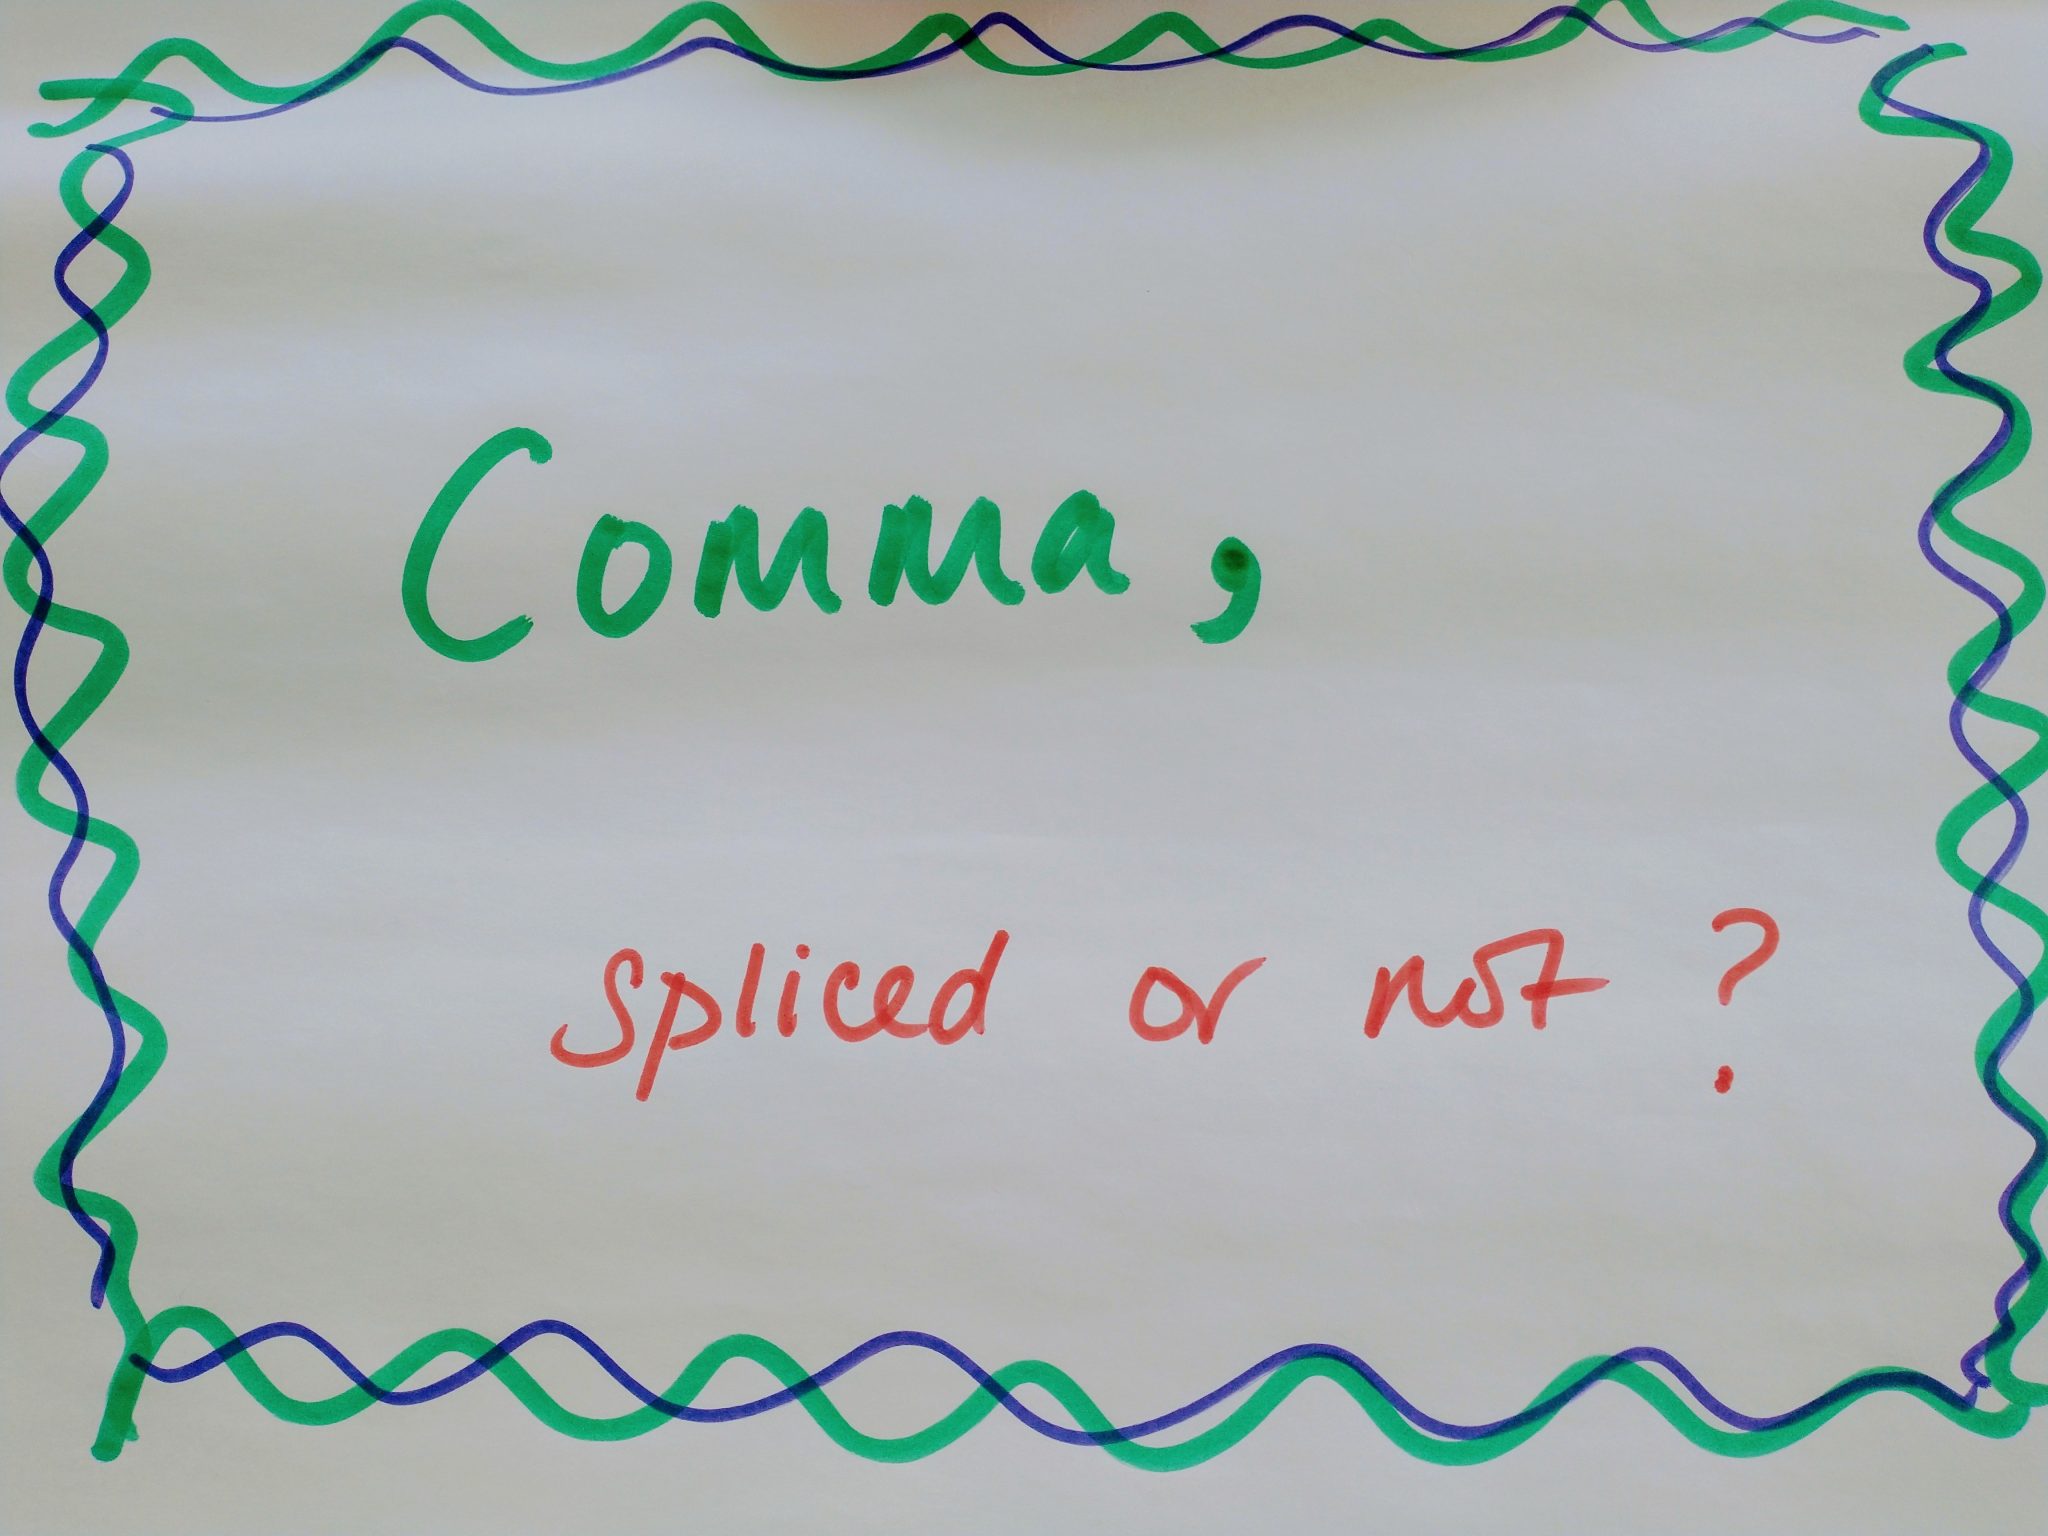 Comma,
spliced or not?